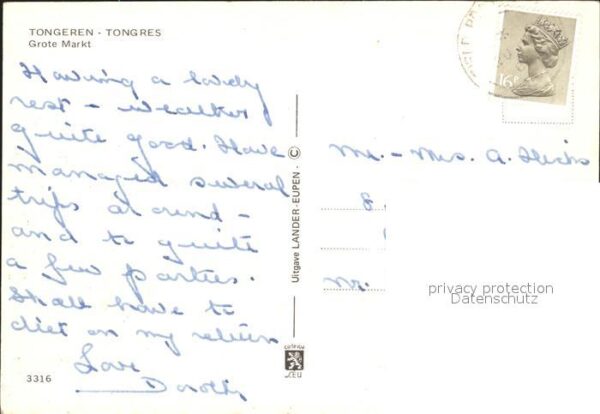 TONGEREN - TONGRES
Grote Markt
Having a lovely
rest - weather
quite good. Have
managed several
trips around -
and to quite
a few parties.
Shall have to
diet on my return
Love
Dorothy
3316
Uitgave LANDER-EUPEN - ©
16P
Mr. - Mrs. A. Hicks
8
Nr.
privacy protection
Datenschutz